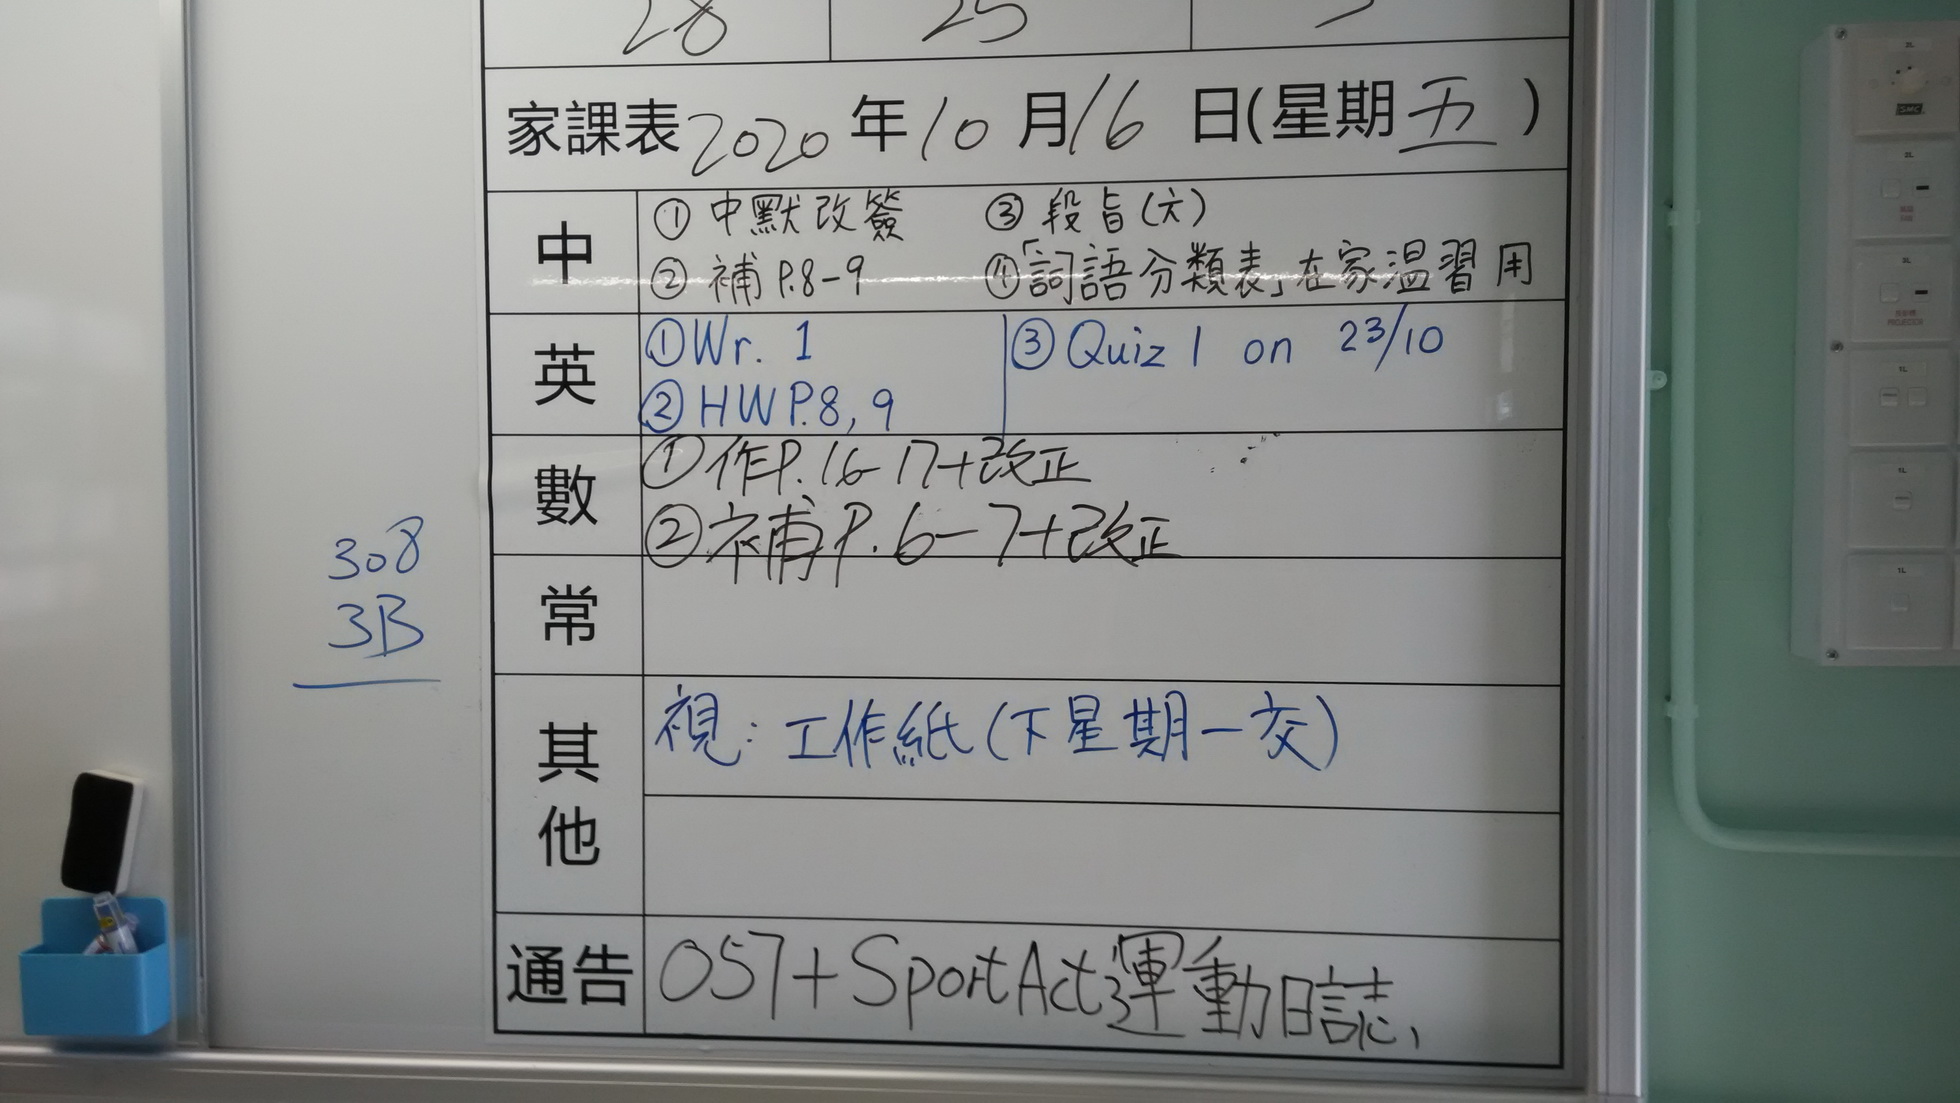 28 25
家課表 2020 年 10 月 16 日(星期 五 )
中
① 中默改簽 ③ 段旨(六)
② 補 P.8-9 ④「詞語分類表」在家温習用
英
① Wr. 1 ③ Quiz 1 on 23/10
② HW P.8, 9
數
① 作P.16-17+改正
② 補P.6-7+改正
常
其他
視: 工作紙(下星期一交)
通告
057+SportAct運動日誌
308
3B